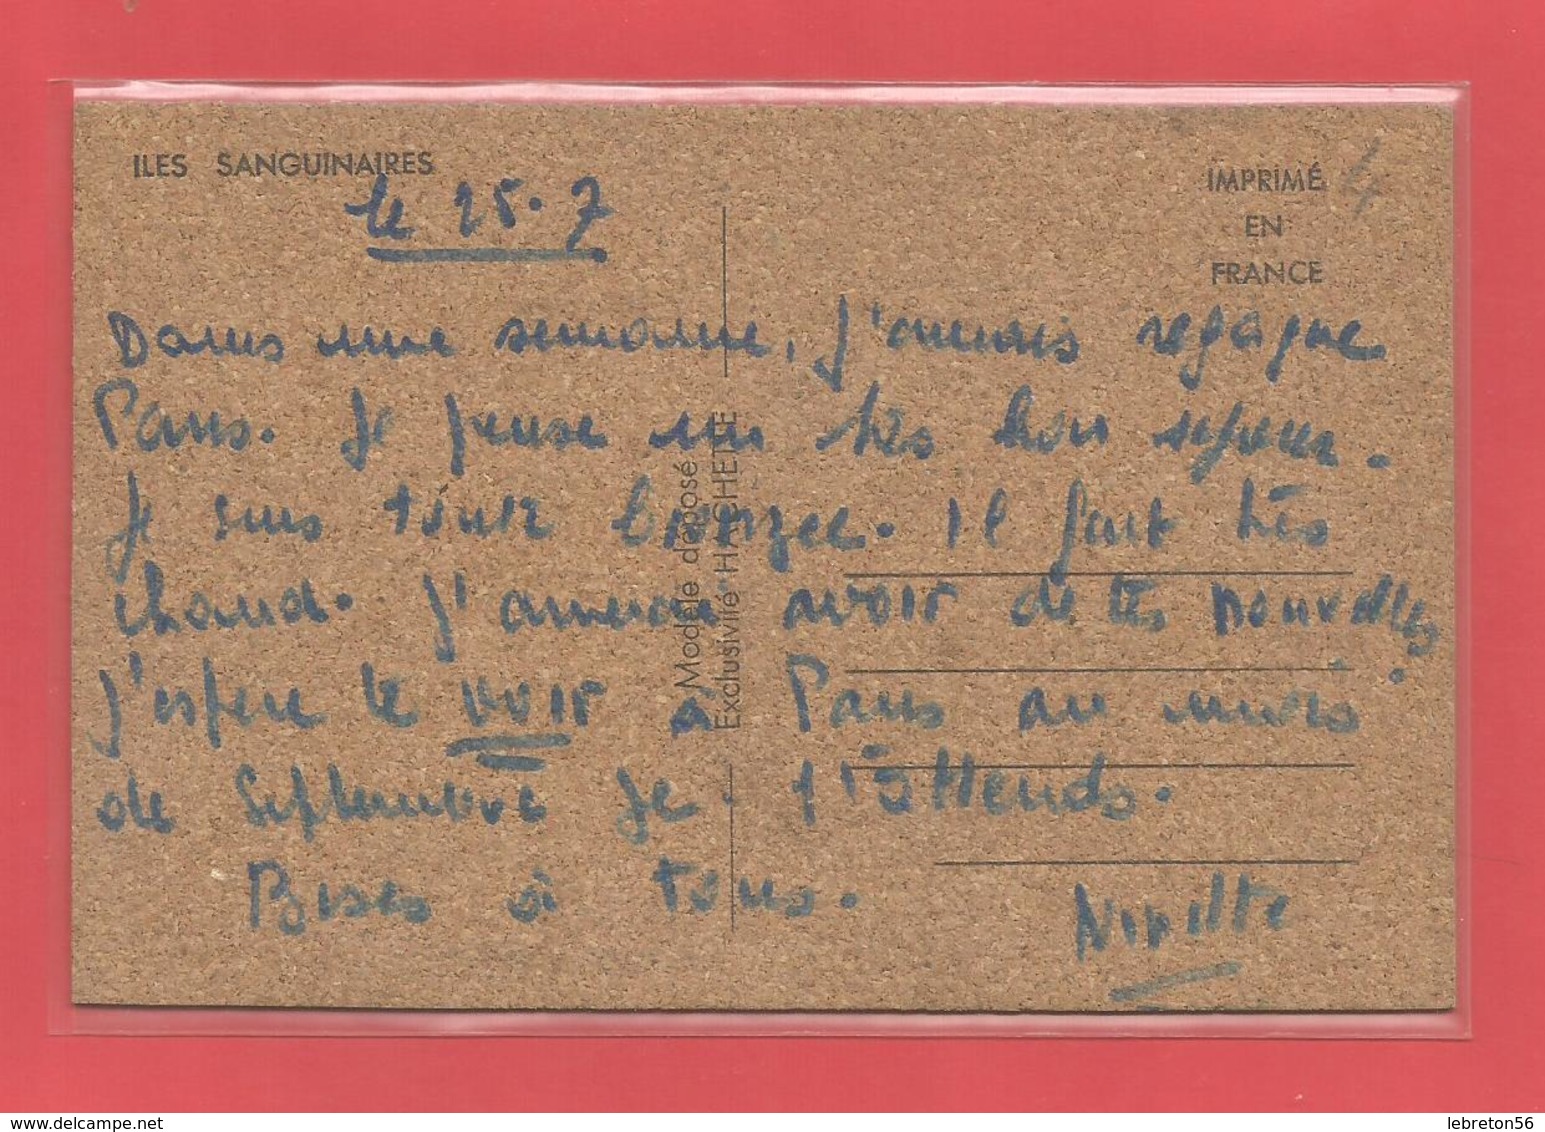 ILES SANGUINAIRES
IMPRIMÉ
EN
FRANCE
4
le 25.7
Dans une semaine, j'aurais regagné
Paris. Je passe un très bon séjour.
Je suis toute bronzée. Il fait très
chaud. J'aimerai avoir de tes nouvelles.
J'espère te voir à Paris au mois
de Septembre je t'attends.
Bises à tous.
Ninette
Modèle déposé
Exclusivité HACHETTE
lebreton56